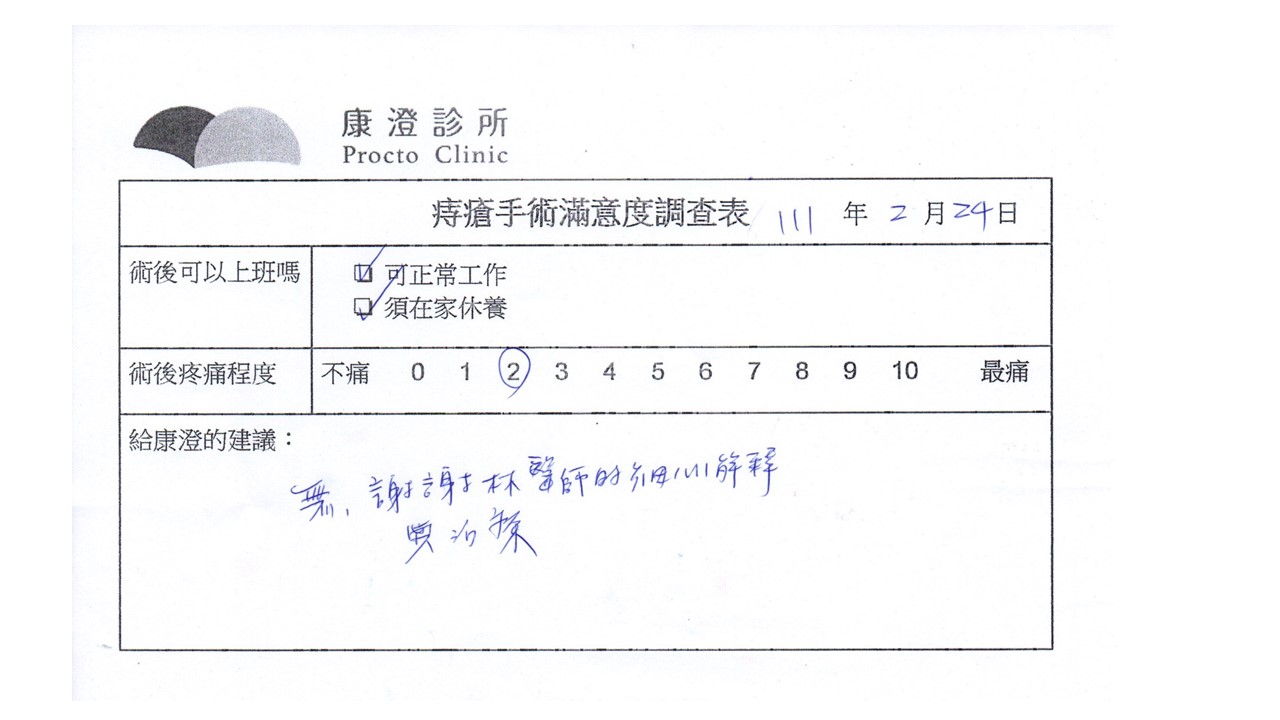 康澄診所
Procto Clinic
痔瘡手術滿意度調查表 111 年 2 月 24 日
術後可以上班嗎
可正常工作
須在家休養
術後疼痛程度 不痛 0 1 2 3 4 5 6 7 8 9 10 最痛
給康澄的建議：
無, 謝謝林醫師的細心解釋
與治療